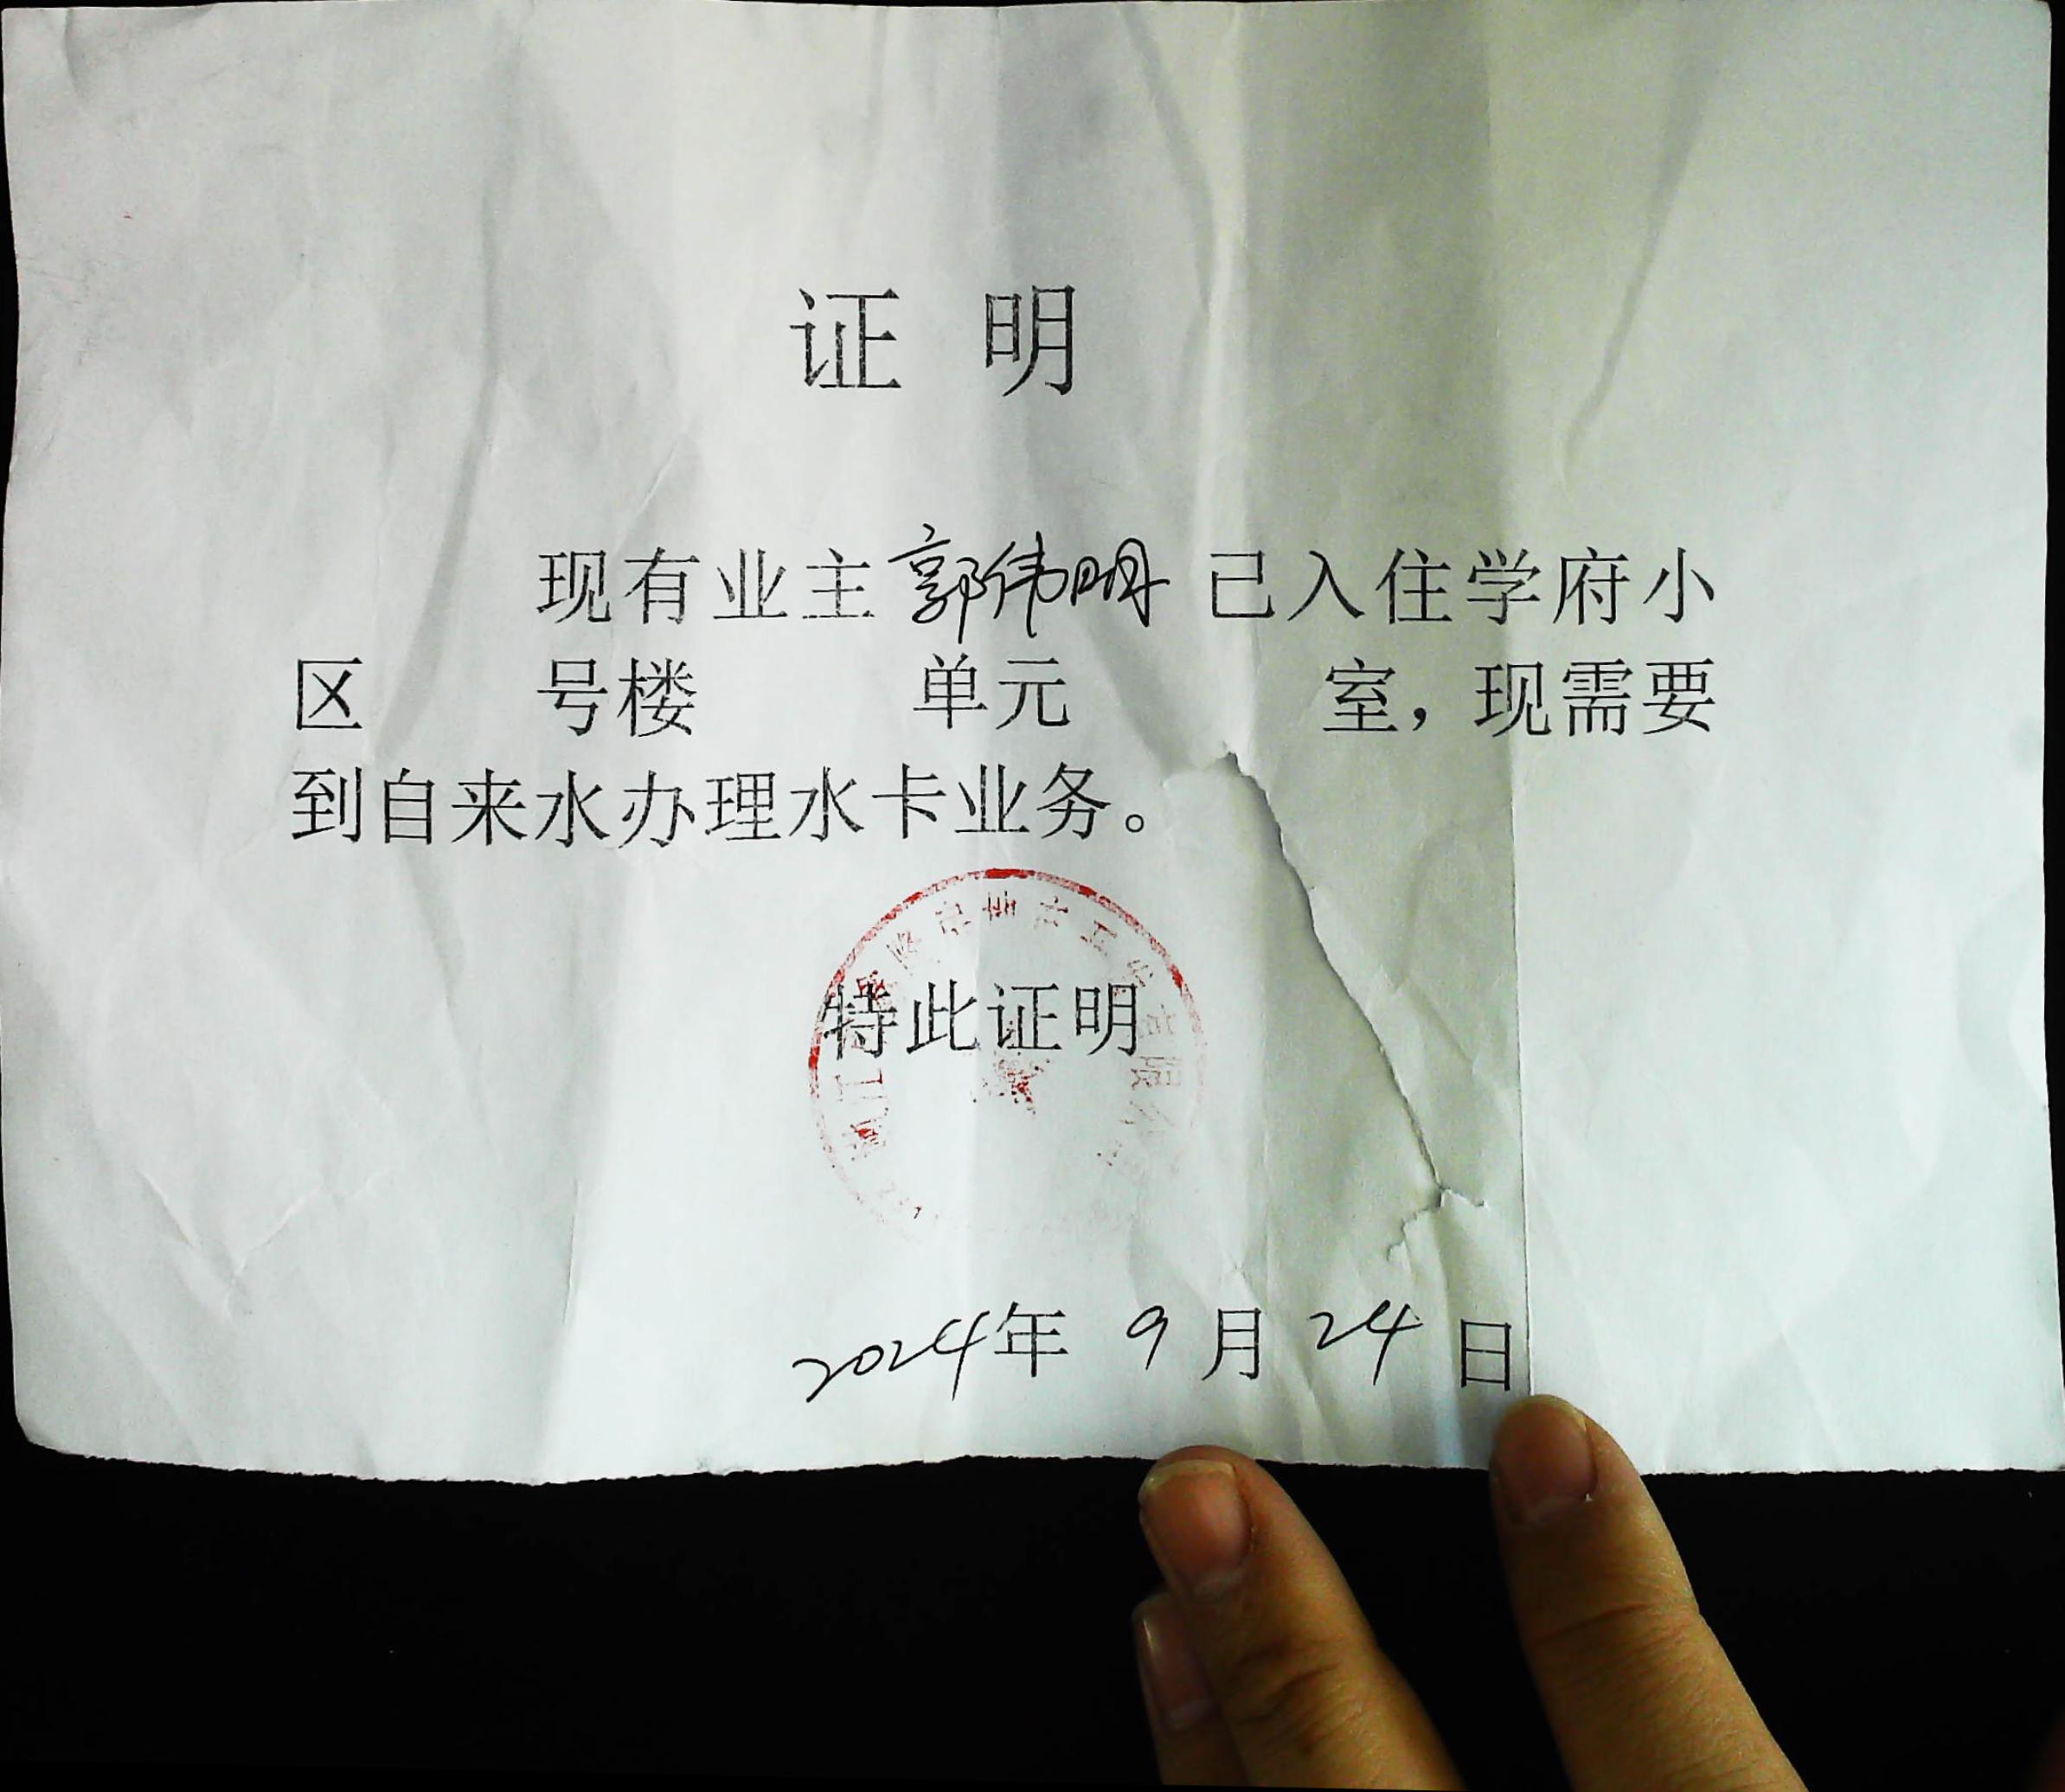 证 明
现有业主郭伟明 已入住学府小
区 号楼 单元 室，现需要
到自来水办理水卡业务。
特此证明
2024年 9月 24日